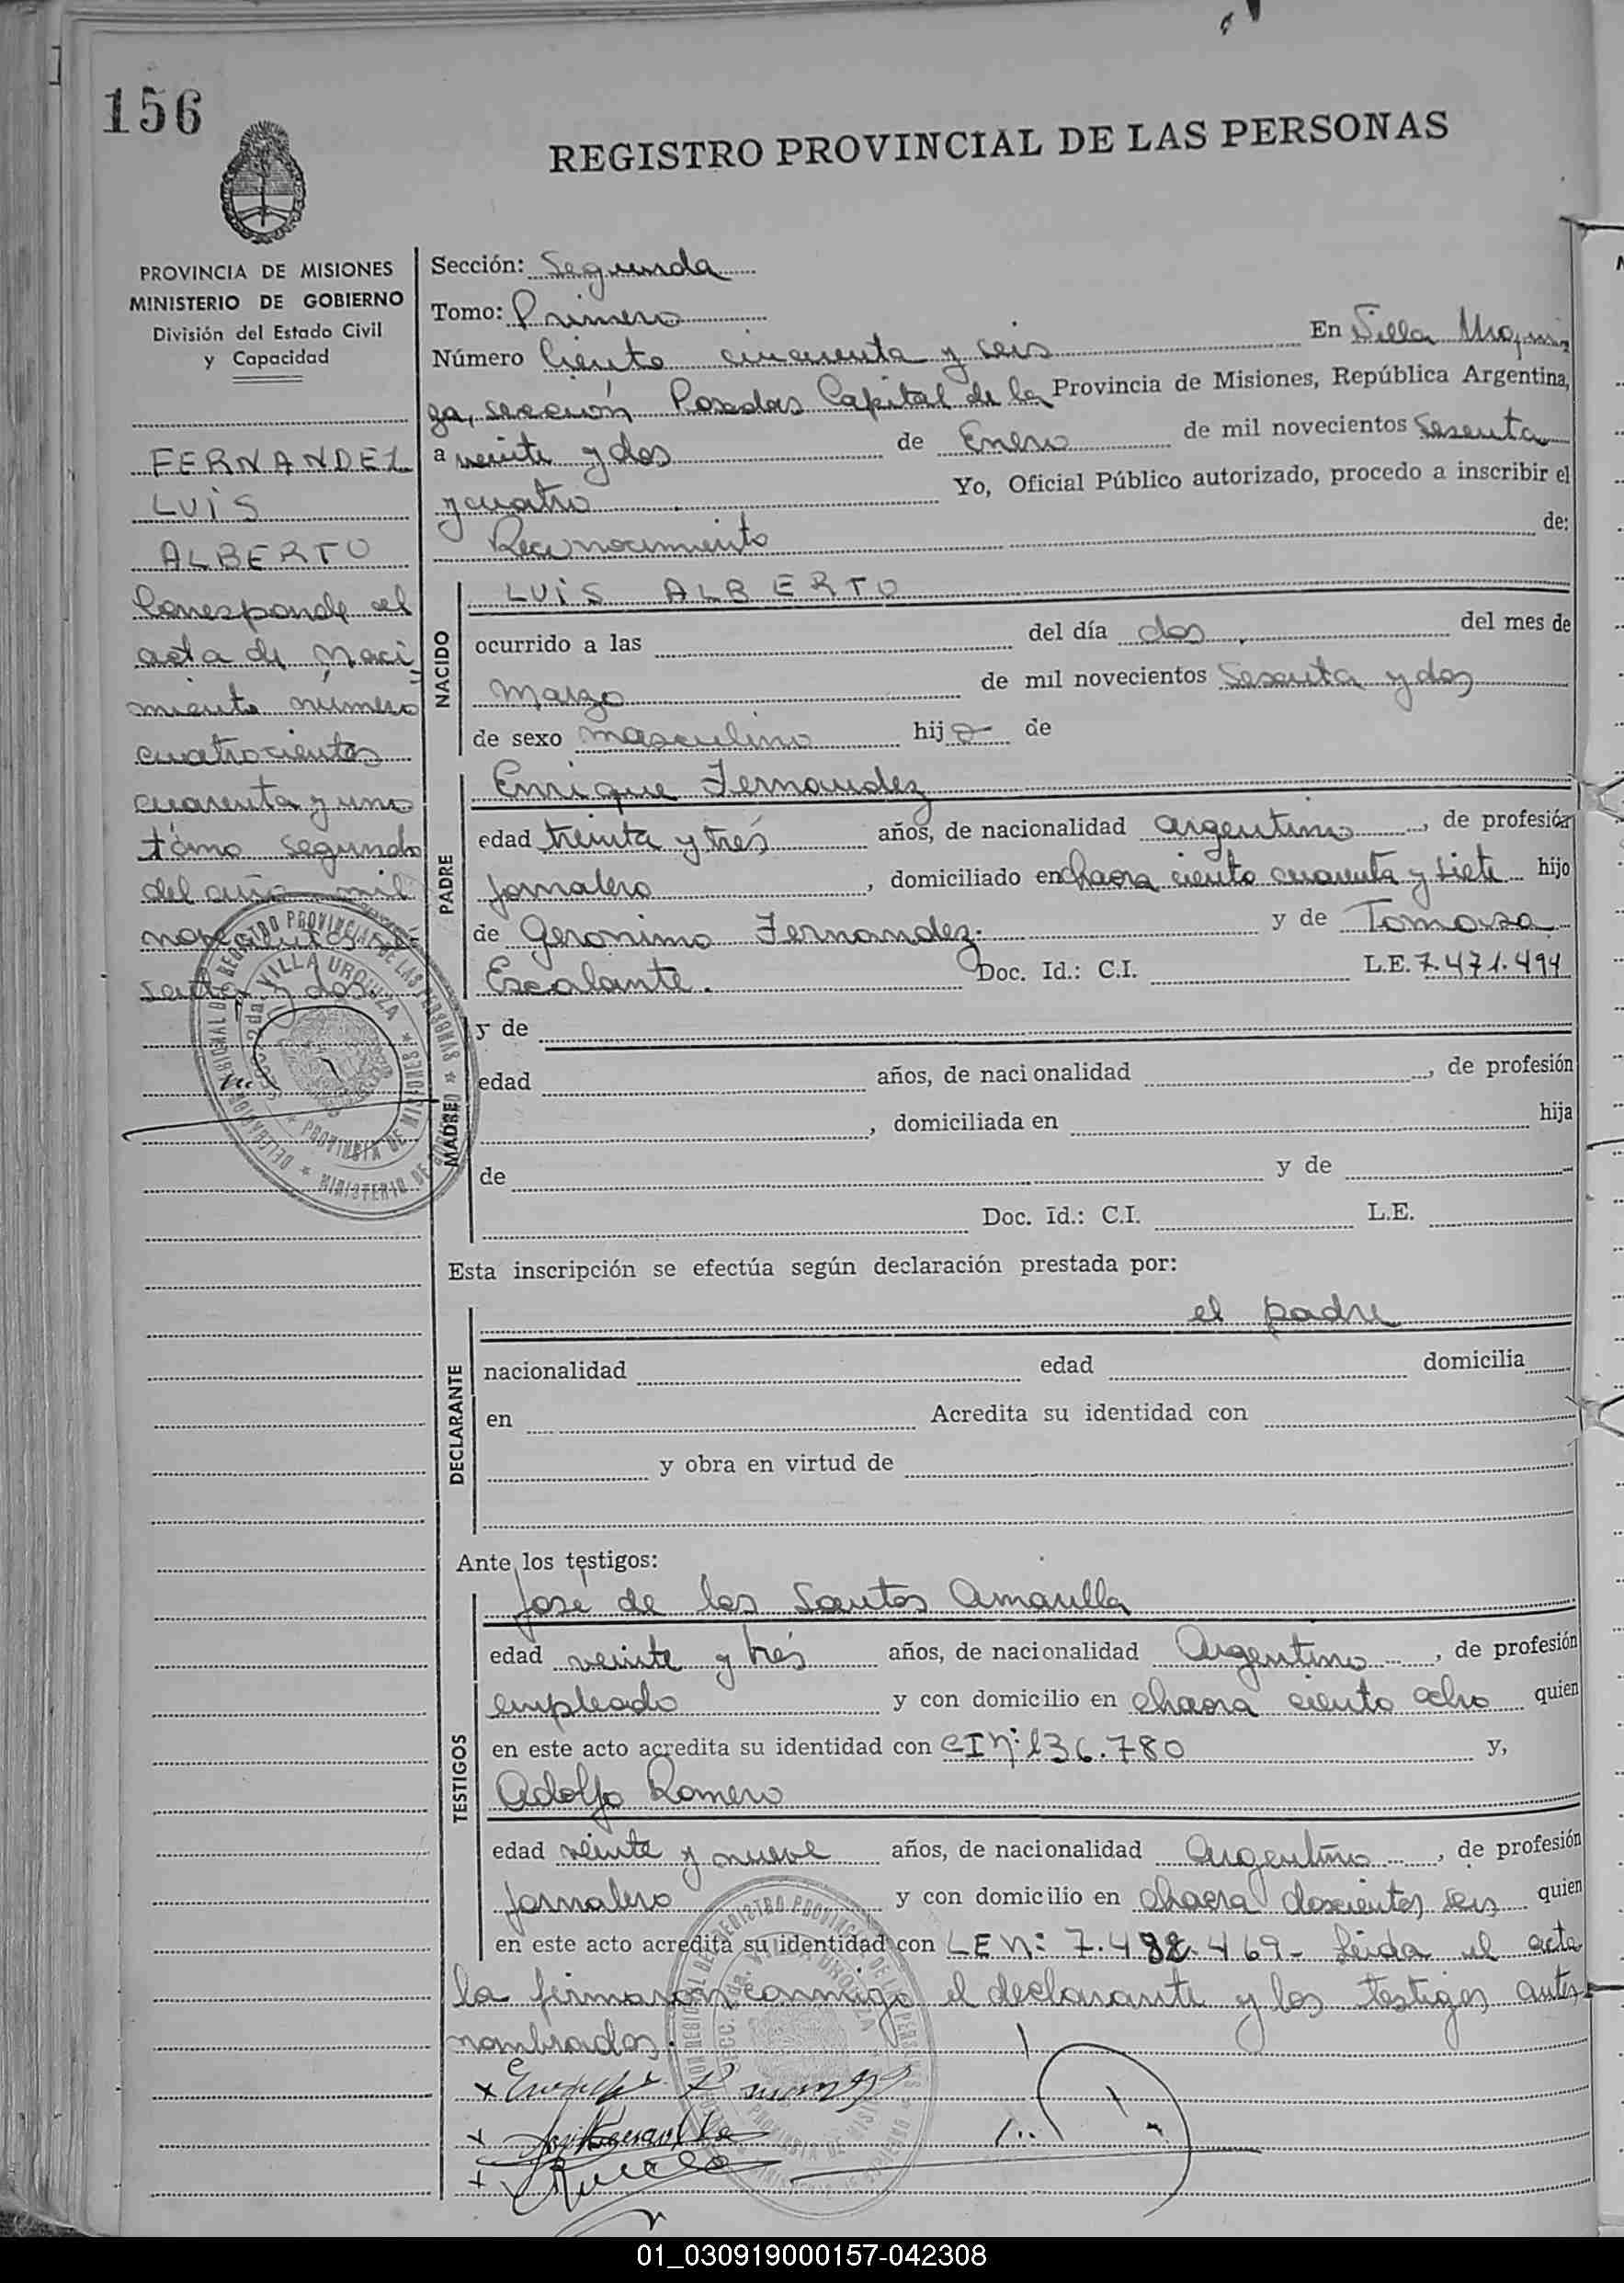 156
REGISTRO PROVINCIAL DE LAS PERSONAS
PROVINCIA DE MISIONES
MINISTERIO DE GOBIERNO
División del Estado Civil
y Capacidad
FERNANDEZ
LUIS
ALBERTO
Corresponde al
acta de naci
miento número
cuatrocientos
cuarenta y uno
tomo segundo
del año mil
novecientos se-
senta y dos.
Sección: Segunda
Tomo: Primero
Número Ciento cincuenta y seis En Villa Urqui
za, sección Posadas Capital de la Provincia de Misiones, República Argentina,
a veinte y dos de Enero de mil novecientos Sesenta
y cuatro Yo, Oficial Público autorizado, procedo a inscribir el
Reconocimiento de:
NACIDO
LUIS ALBERTO
ocurrido a las del día dos del mes de
Marzo de mil novecientos Sesenta y dos
de sexo masculino hijo de
PADRE
Enrique Fernandez
edad treinta y tres años, de nacionalidad argentino, de profesión
jornalero, domiciliado en chacra ciento cuarenta y siete hijo
de Geronimo Fernandez y de Tomasa
Escalante. Doc. Id.: C.I. L.E. 7.471.494
MADRE
y de
edad años, de nacionalidad , de profesión
, domiciliada en hija
de y de
Doc. Id.: C.I. L.E.
Esta inscripción se efectúa según declaración prestada por:
DECLARANTE
el padre
nacionalidad edad domicilia
en Acredita su identidad con
y obra en virtud de
Ante los testigos:
TESTIGOS
José de los Santos Amarilla
edad veinte y tres años, de nacionalidad Argentino, de profesión
empleado y con domicilio en chacra ciento ocho quien
en este acto acredita su identidad con CI Nº 136.780 y,
Adolfo Romero
edad veinte y nueve años, de nacionalidad Argentino, de profesión
jornalero y con domicilio en chacra doscientos seis quien
en este acto acredita su identidad con LE Nº 7.488.469- Leida el acta
la firmaron conmigo el declarante y los testigos antes
nombrados.
01_030919000157-042308